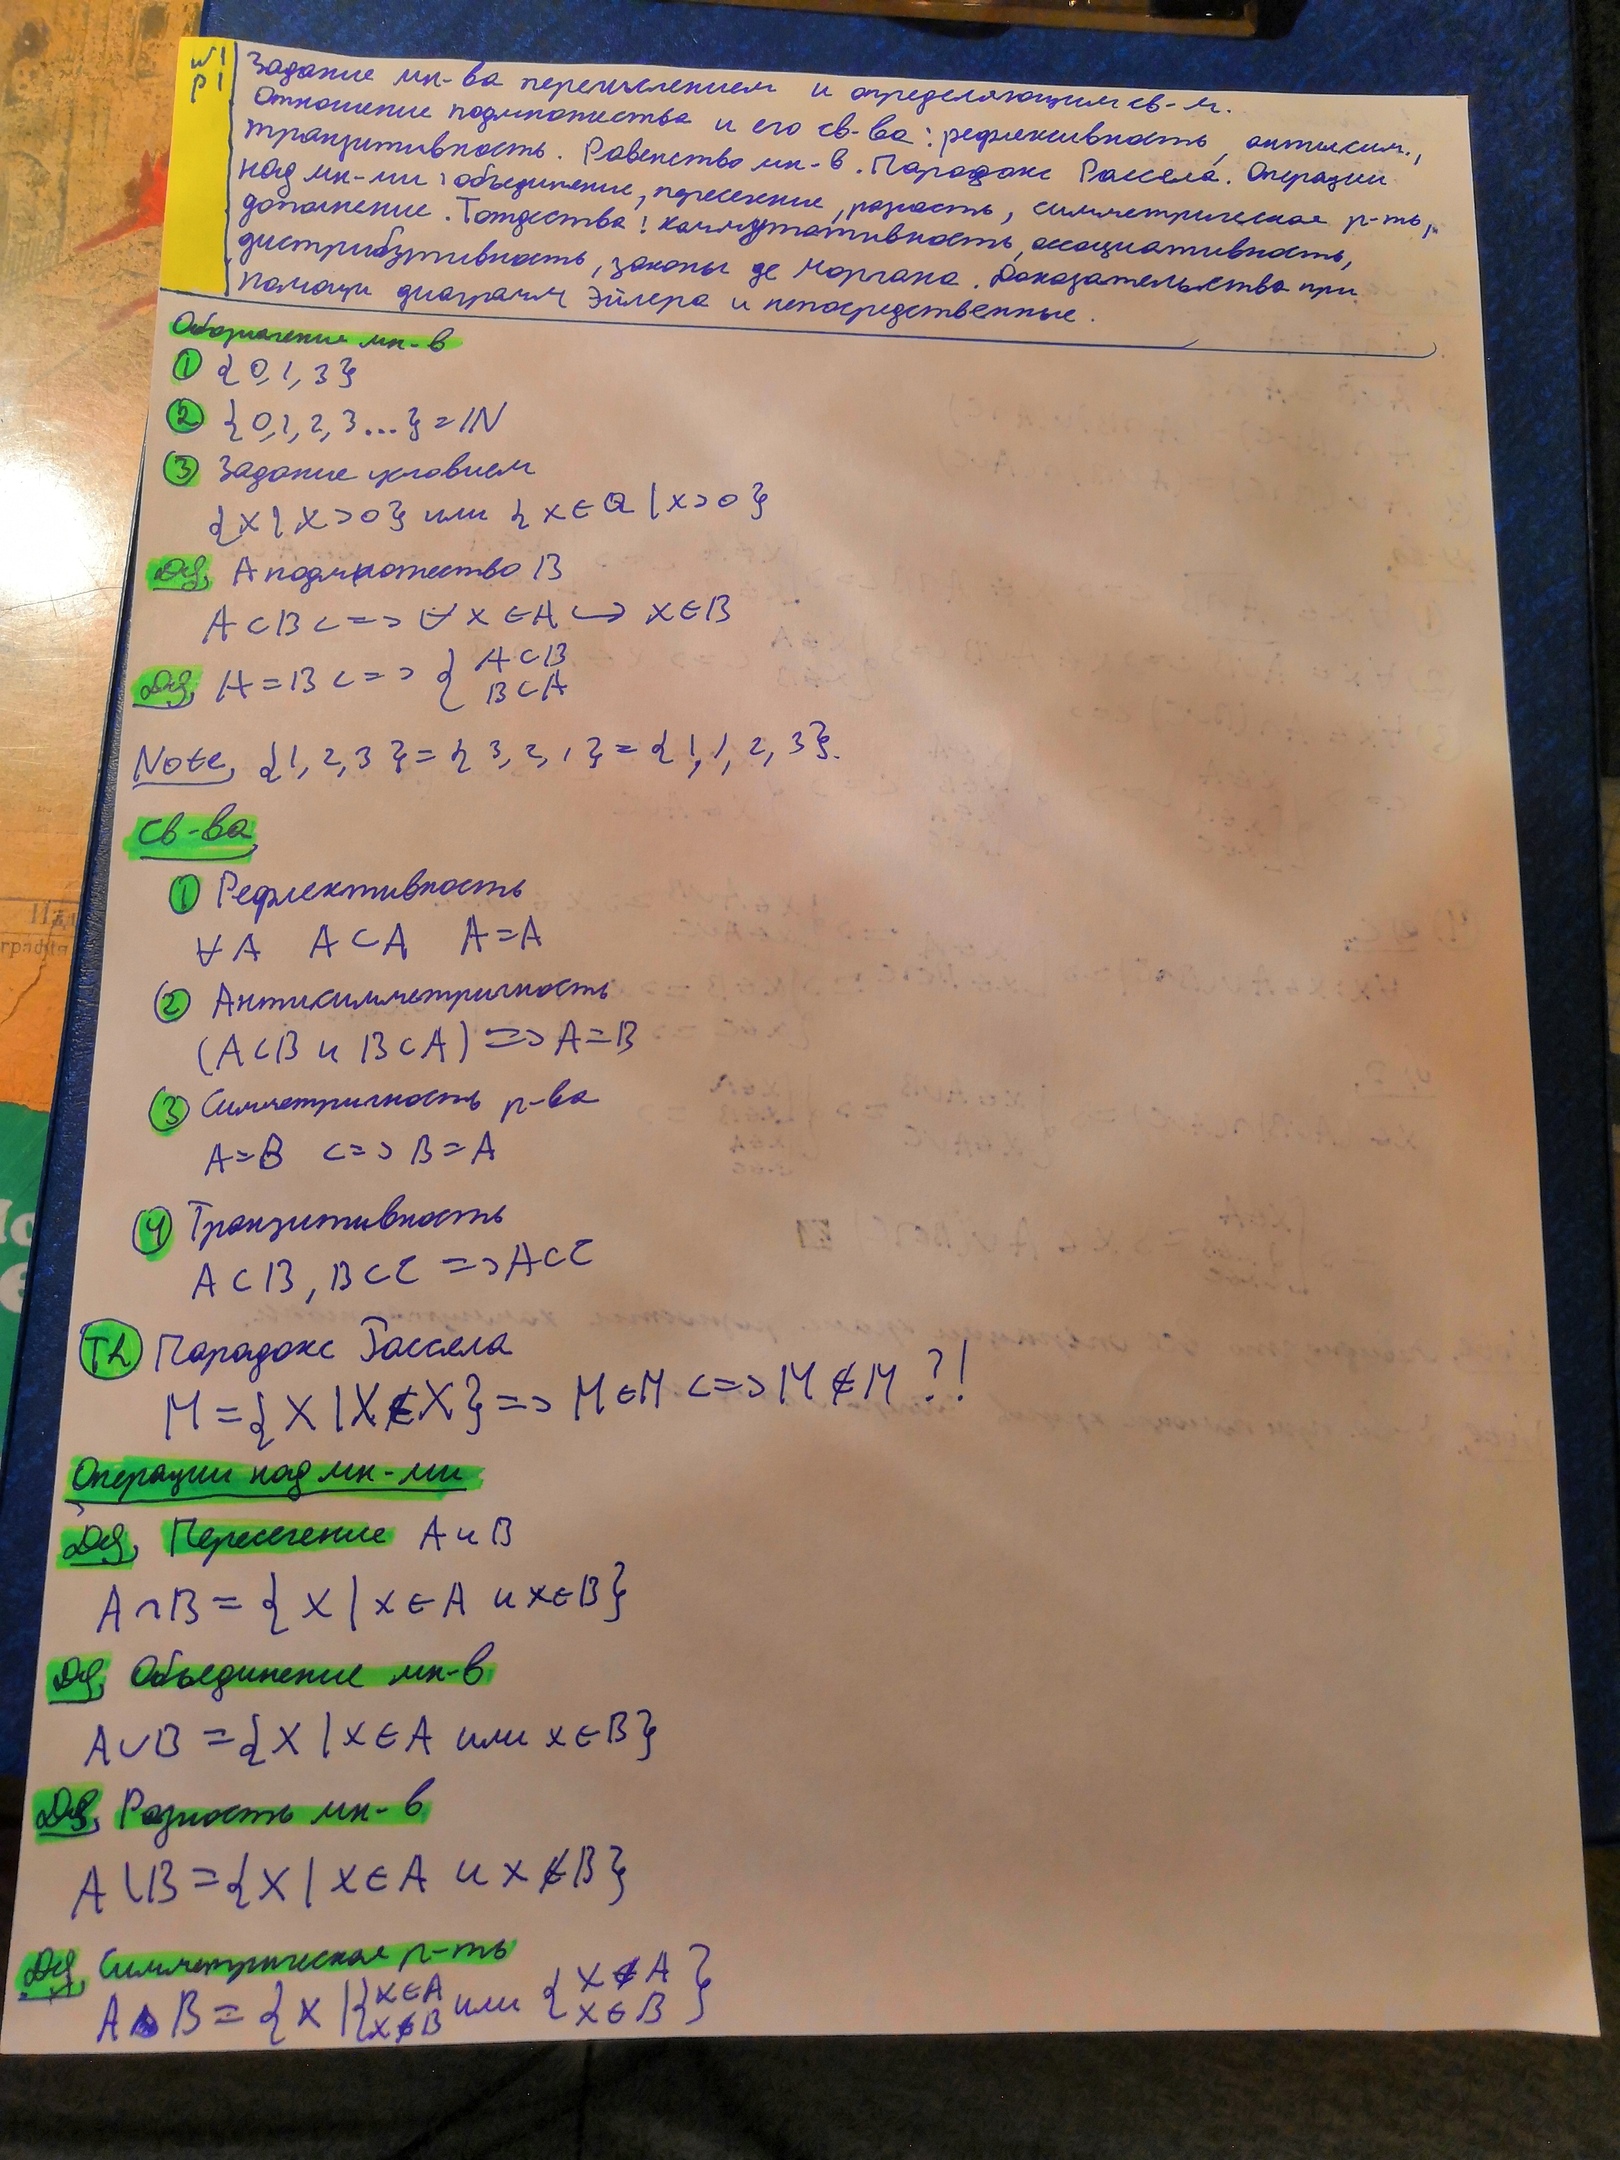 W1
P1
Задание мн-ва перечислением и определяющим св-м.
Отношение подмножества и его св-ва: рефлексивность, антисим.,
транзитивность. Равенство мн-в. Парадокс Рассела. Операции
над мн-ми: объединение, пересечение, разность, симметрическая р-ть,
дополнение. Тождества: коммутативность, ассоциативность,
дистрибутивность, законы де Моргана. Доказательства при
помощи диаграмм Эйлера и непосредственные.
Обозначение мн-в
① {0, 1, 3}
② {0, 1, 2, 3...} = ℕ
③ Задание условием
{x | x > 0} или {x ∈ ℚ | x > 0}
Def, A подмножество B
A ⊂ B <=> ∀ x ∈ A ↪ x ∈ B
Def, A = B <=> { A ⊂ B
B ⊂ A
Note, {1, 2, 3} = {3, 2, 1} = {1, 1, 2, 3}.
Св-ва
① Рефлективность
∀ A A ⊂ A A = A
② Антисимметричность
(A ⊂ B и B ⊂ A) => A = B
③ Симметричность р-ва
A = B <=> B = A
④ Транзитивность
A ⊂ B, B ⊂ C => A ⊂ C
Th Парадокс Рассела
M = {X | X ∉ X} => M ∈ M <=> M ∉ M ?!
Операции над мн-ми
Def, Пересечение A и B
A ∩ B = {x | x ∈ A и x ∈ B}
Def, Объединение мн-в
A ∪ B = {x | x ∈ A или x ∈ B}
Def, Разность мн-в
A \ B = {x | x ∈ A и x ∉ B}
Def, Симметрическая р-ть
A △ B = {x | { x ∈ A или { x ∉ A }
x ∉ B x ∈ B